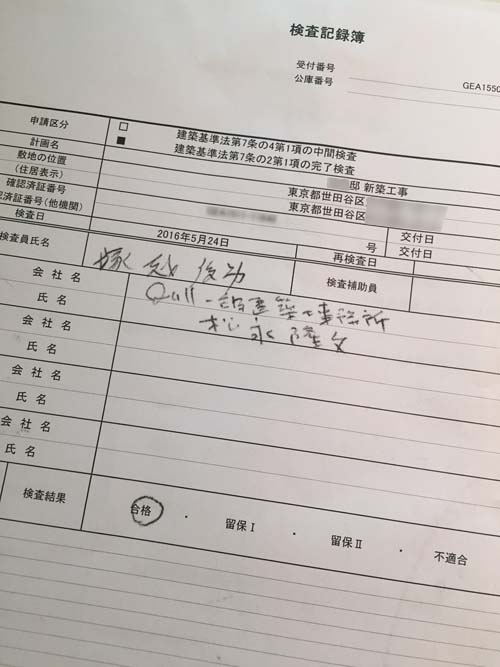 検査記録簿
受付番号
GEA1550
公庫番号
申請区分
□ 建築基準法第7条の4第1項の中間検査
■ 建築基準法第7条の2第1項の完了検査
計画名
邸 新築工事
敷地の位置
東京都世田谷区
(住居表示)
東京都世田谷区
確認済証番号
交付日
済証番号(他機関)
号
交付日
検査日
2016年5月24日
再検査日
検査員氏名
検査補助員
会 社 名
一級建築事務所
氏 名
松永
会 社 名
氏 名
会 社 名
氏 名
会 社 名
氏 名
検査結果
合格 ・ 留保Ⅰ ・ 留保Ⅱ ・ 不適合